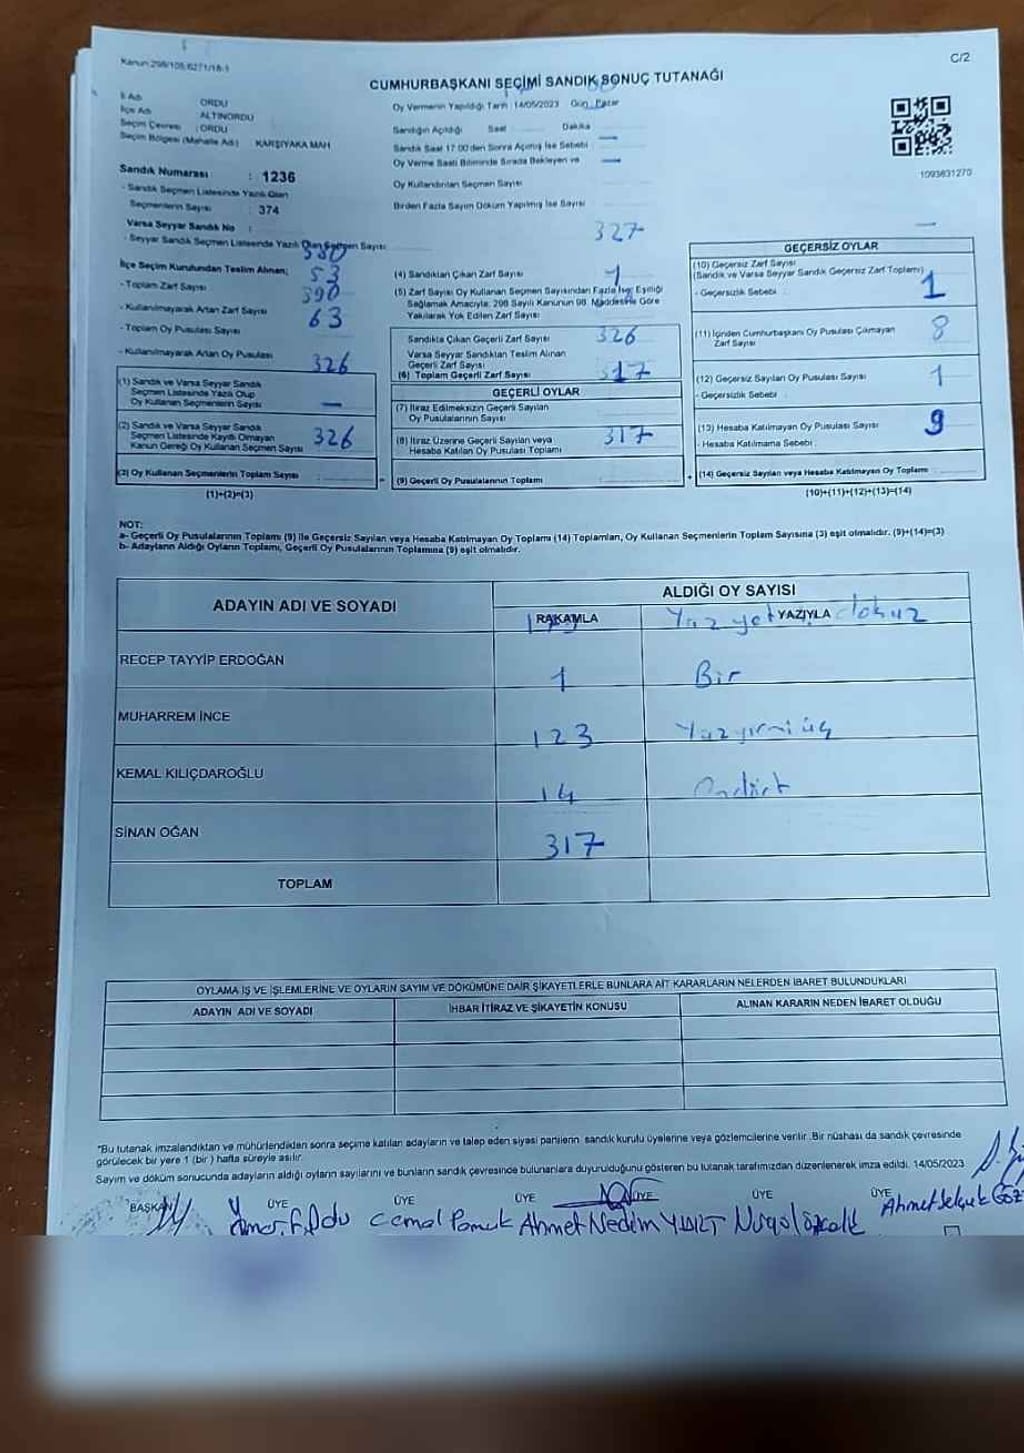 Kanun:298/105,6271/18-1
C/2
CUMHURBAŞKANI SEÇİMİ SANDIK SONUÇ TUTANAĞI
İl Adı ORDU
İlçe Adı ALTINORDU
Seçim Çevresi : ORDU
Seçim Bölgesi (Mahalle Adı) KARŞIYAKA MAH
Sandık Numarası : 1236
- Sandık Seçmen Listesinde Yazılı Olan
Seçmenlerin Sayısı : 374
Varsa Seyyar Sandık No :
- Seyyar Sandık Seçmen Listesinde Yazılı Olan Seçmen Sayısı
380
İlçe Seçim Kurulundan Teslim Alınan;
53
- Toplam Zarf Sayısı
390
- Kullanılmayarak Artan Zarf Sayısı
63
- Toplam Oy Pusulası Sayısı
- Kullanılmayarak Artan Oy Pusulası
326
(1) Sandık ve Varsa Seyyar Sandık
Seçmen Listesinde Yazılı Olup
Oy Kullanan Seçmenlerin Sayısı
—
(2) Sandık ve Varsa Seyyar Sandık
Seçmen Listesinde Kayıtlı Olmayan
Kanun Gereği Oy Kullanan Seçmen Sayısı
326
(3) Oy Kullanan Seçmenlerin Toplam Sayısı
(1)+(2)=(3)
Oy Vermenin Yapıldığı Tarih : 14/05/2023 Gün : Pazar
Sandığın Açıldığı Saat Dakika
Sandık Saat 17:00'den Sonra Açılmış İse Sebebi —
Oy Verme Saati Bitiminde Sırada Bekleyen ve —
Oy Kullandırılan Seçmen Sayısı
Birden Fazla Sayım Döküm Yapılmış İse Sayısı
327
(4) Sandıktan Çıkan Zarf Sayısı
1
(5) Zarf Sayısı Oy Kullanan Seçmen Sayısından Fazla İse; Eşitliği
Sağlamak Amacıyla; 298 Sayılı Kanunun 98. Maddesine Göre
Yakılarak Yok Edilen Zarf Sayısı
326
Sandıkta Çıkan Geçerli Zarf Sayısı
Varsa Seyyar Sandıktan Teslim Alınan
Geçerli Zarf Sayısı
317
(6) Toplam Geçerli Zarf Sayısı
GEÇERLİ OYLAR
(7) İtiraz Edilmeksizin Geçerli Sayılan
Oy Pusulalarının Sayısı
317
(8) İtiraz Üzerine Geçerli Sayılan veya
Hesaba Katılan Oy Pusulası Toplamı
(9) Geçerli Oy Pusulalarının Toplamı
1093631270
—
GEÇERSİZ OYLAR
(10) Geçersiz Zarf Sayısı
(Sandık ve Varsa Seyyar Sandık Geçersiz Zarf Toplamı)
1
- Geçersizlik Sebebi :
(11) İçinden Cumhurbaşkanı Oy Pusulası Çıkmayan
Zarf Sayısı
8
(12) Geçersiz Sayılan Oy Pusulası Sayısı
1
- Geçersizlik Sebebi
(13) Hesaba Katılmayan Oy Pusulası Sayısı
9
- Hesaba Katılmama Sebebi
(14) Geçersiz Sayılan veya Hesaba Katılmayan Oy Toplamı
(10)+(11)+(12)+(13)=(14)
NOT:
a- Geçerli Oy Pusulalarının Toplamı (9) ile Geçersiz Sayılan veya Hesaba Katılmayan Oy Toplamı (14) Toplamları, Oy Kullanan Seçmenlerin Toplam Sayısına (3) eşit olmalıdır. (9)+(14)=(3)
b- Adayların Aldığı Oyların Toplamı, Geçerli Oy Pusulalarının Toplamına (9) eşit olmalıdır.
ADAYIN ADI VE SOYADI
ALDIĞI OY SAYISI
RAKAMLA YAZIYLA
179 Yüz yetmiş dokuz
RECEP TAYYİP ERDOĞAN
1 Bir
MUHARREM İNCE
123 Yüz yirmi üç
KEMAL KILIÇDAROĞLU
14 Ondört
SİNAN OĞAN
317
TOPLAM
OYLAMA İŞ VE İŞLEMLERİNE VE OYLARIN SAYIM VE DÖKÜMÜNE DAİR ŞİKAYETLERLE BUNLARA AİT KARARLARIN NELERDEN İBARET BULUNDUKLARI
ADAYIN ADI VE SOYADI İHBAR İTİRAZ VE ŞİKAYETİN KONUSU ALINAN KARARIN NEDEN İBARET OLDUĞU
*Bu tutanak imzalandıktan ve mühürlendikten sonra seçime katılan adayların ve talep eden siyasi partilerin sandık kurulu üyelerine veya gözlemcilerine verilir. Bir nüshası da sandık çevresinde
görülecek bir yere 1 (bir) hafta süreyle asılır.
Sayım ve döküm sonucunda adayların aldığı oyların sayılarını ve bunların sandık çevresinde bulunanlara duyurulduğunu gösteren bu tutanak tarafımızdan düzenlenerek imza edildi. 14/05/2023
BAŞKAN ÜYE ÜYE ÜYE ÜYE ÜYE ÜYE
Cemal Pamuk Ahmet Nedim Ahmet Selçuk